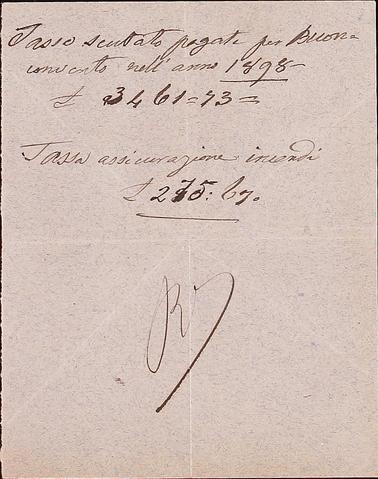 Tasse scubato pagate per Buon=
convento nell'anno 1898
£ 3461=73=
Tassa assicurazione incendi
£ 275: 67.
R